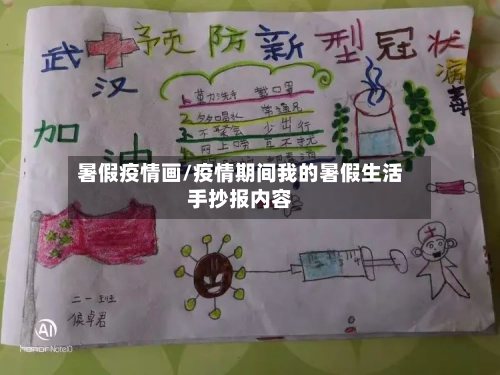 预防新型冠状
病毒
武汉
加油
1.勤洗手 戴口罩
常通风
3.不聚会 少出行
暑假疫情画/疫情期间我的暑假生活
手抄报内容
二一班
侯卓君
AI
HONOR Note10